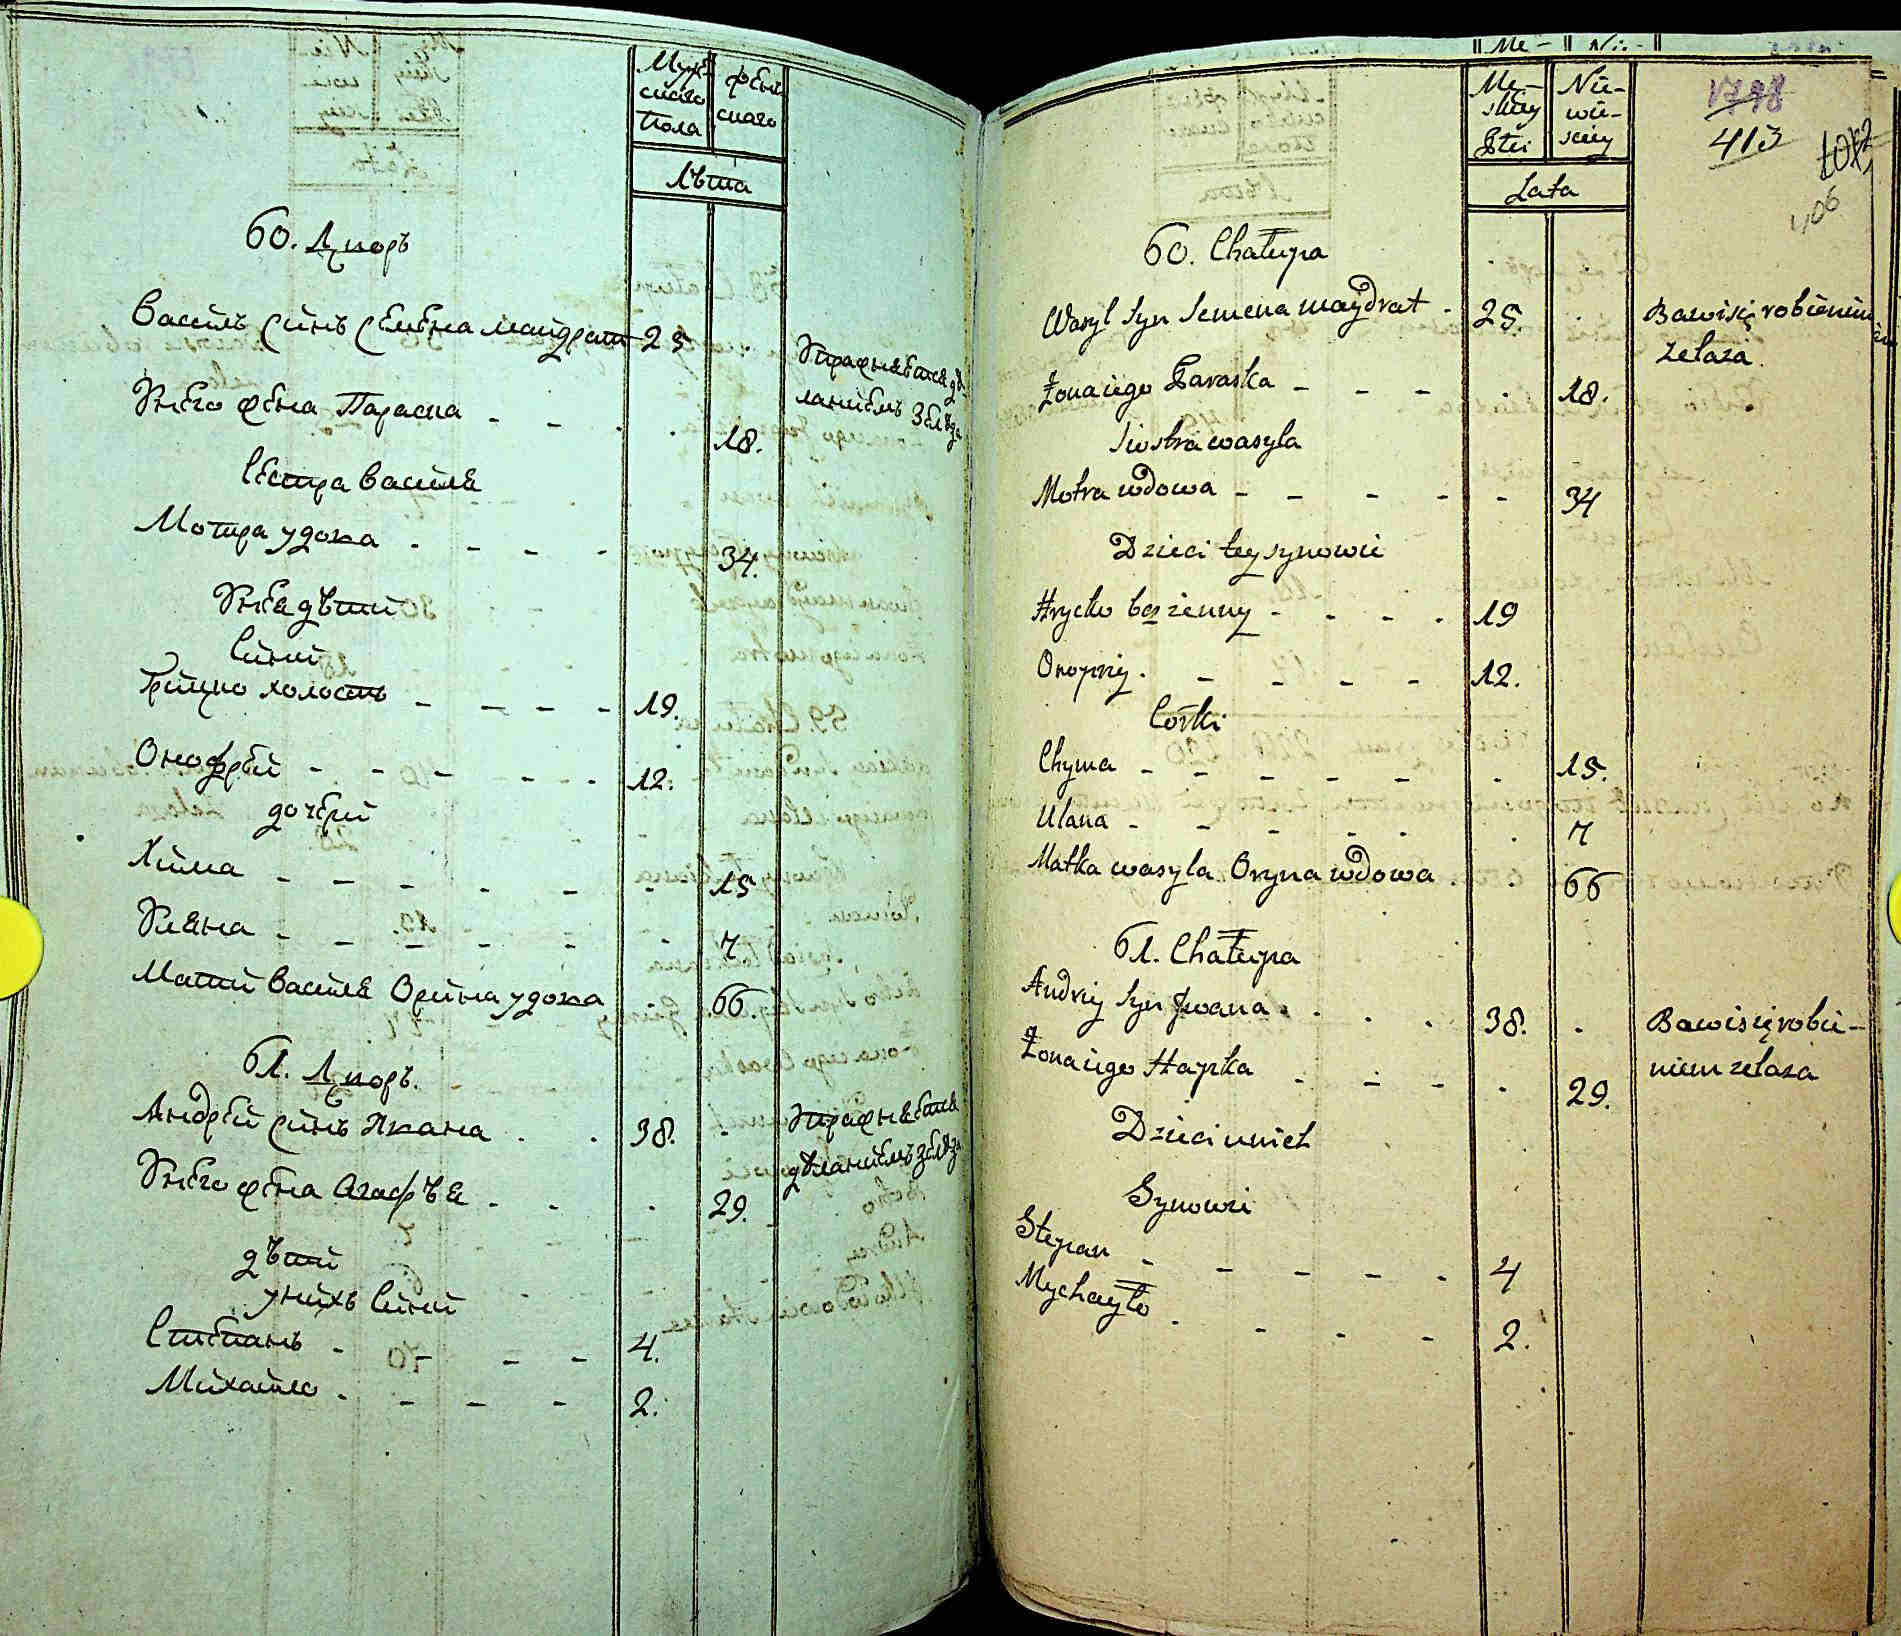 Муж-
скаго
Пола
жен-
скаго
лѣта
60. Дворъ
Василь синъ семена майдрат 25
Упражняется дѣ-
ланиемъ зелѣза
Унего жена Параска - - . . 18.
Сестра василя
Мотра удова . - - - 34.
Унея дѣти
Сини
Грицко холостъ - - - - 19.
Онофрей - - - - - 12.
дочери
Хима - - - - - - 15
Уляна - - - - - - 7.
Мати василя Орина удова 66.
61. Дворъ.
Андрей синъ Ивана . . 38. .
Упражняется
дѣланиемъ зелѣза
Унего жена Агафѣя . . . 29.
дѣти
унихъ Сини
Степанъ - - - - 4.
Михайло . - - - 2.
Me- Nie-
Me-
skiey
Płci
Nie-
wie-
sciey
Lata
1798
413
406
60. Chałupa
Wasyl Syn Semena maydrat . 25. .
Bawi się robieniem
żelaza
Żona iego Paraska - - - . 18.
Siostra wasyla
Motra wdowa - - - - - 34
Dzieci tey synowie
Hrycko bezżenny - . - . 19
Onopriy . - - - - 12.
Córki
Chyma - - - - - - . 15.
Ulana - - - - . . 7
Matka wasyla Oryna wdowa . . 66
61. Chałupa
Andriy Syn Jwana . . . . 38. .
Bawi się robie-
niem zelaza
Żona iego Hapka . - - . 29.
Dzieci unich
Synowie
Stepan - - - - - . 4
Mychayło . - - - 2.